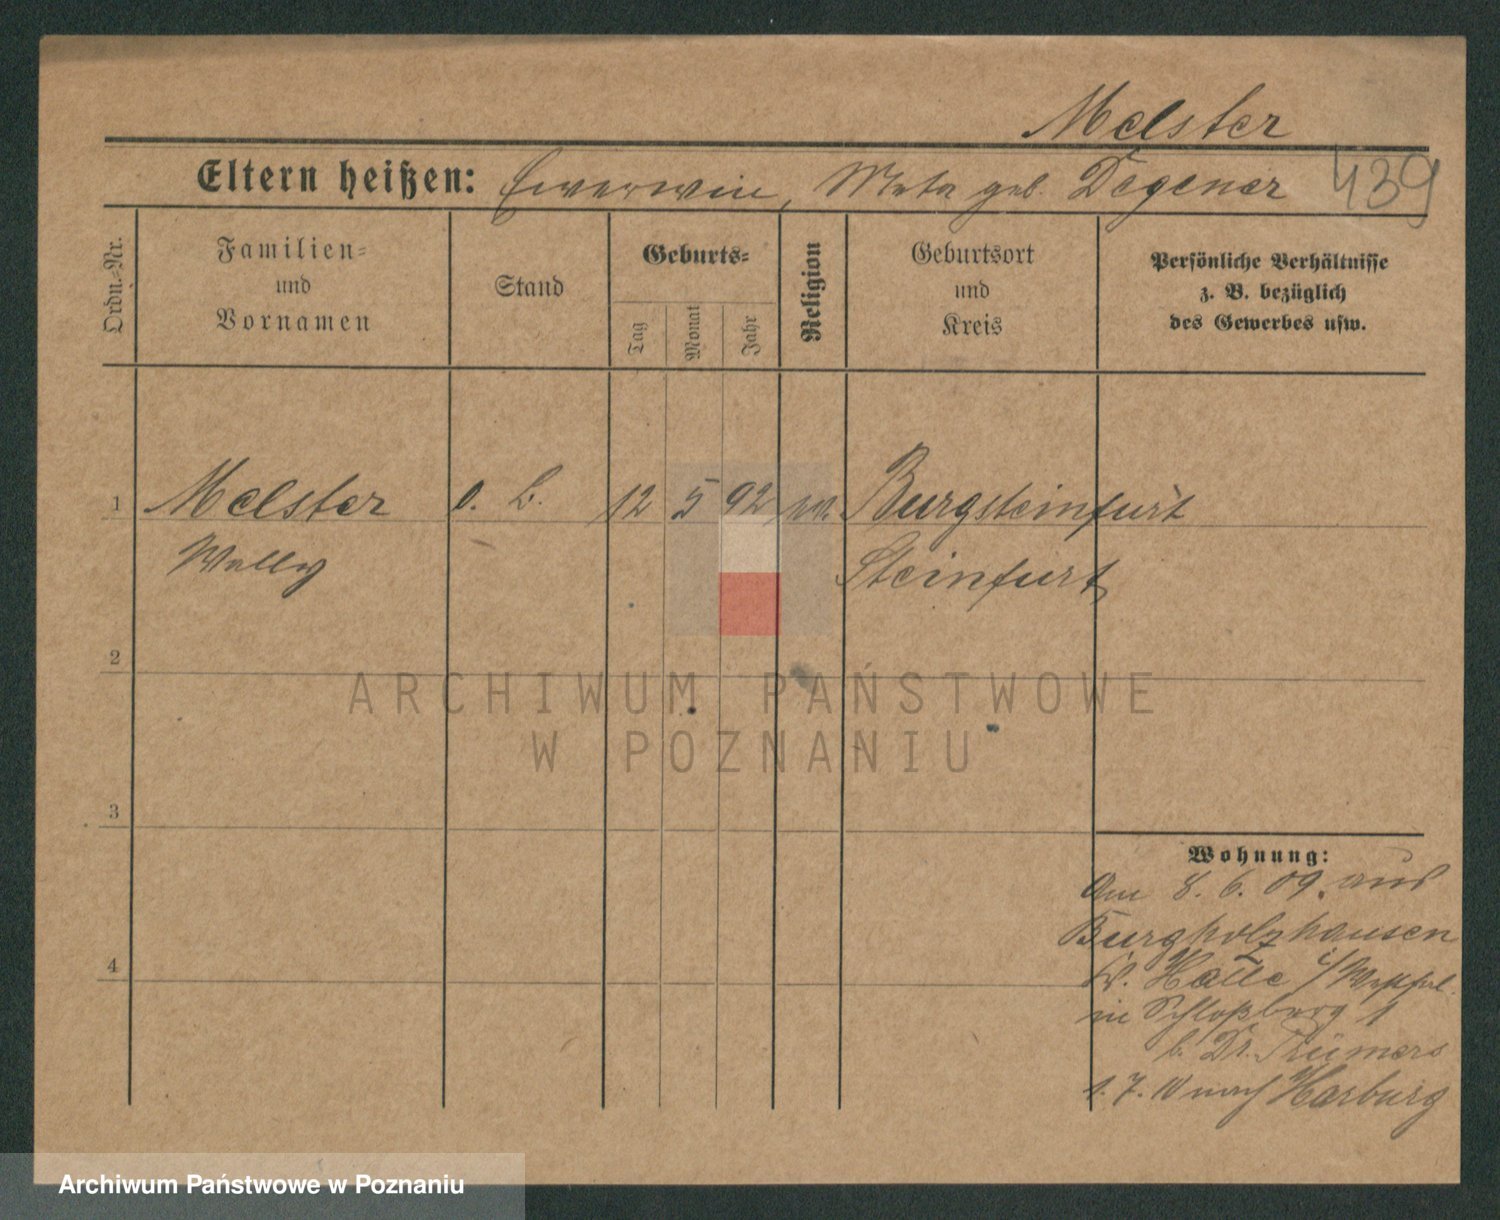 Melster
439
Eltern heißen: Ewerwin, Meta geb. Degener
Ordn.-Nr.
Familien-
und
Vornamen
Stand
Geburts-
Tag
Monat
Jahr
Religion
Geburtsort
und
Kreis
Persönliche Verhältnisse
z. B. bezüglich
des Gewerbes usw.
1 Melster o. B. 12 5 92 ev. Burgsteinfurt
Willy Steinfurt
2
3
4
Wohnung:
Am 8. 6. 09. aus
Burgholzhausen
Halle i/Westfal.
in Schloßberg 1
b. Dr. Trümers
1. 7. 10 nach Harburg
ARCHIWUM PAŃSTWOWE
W POZNANIU
Archiwum Państwowe w Poznaniu